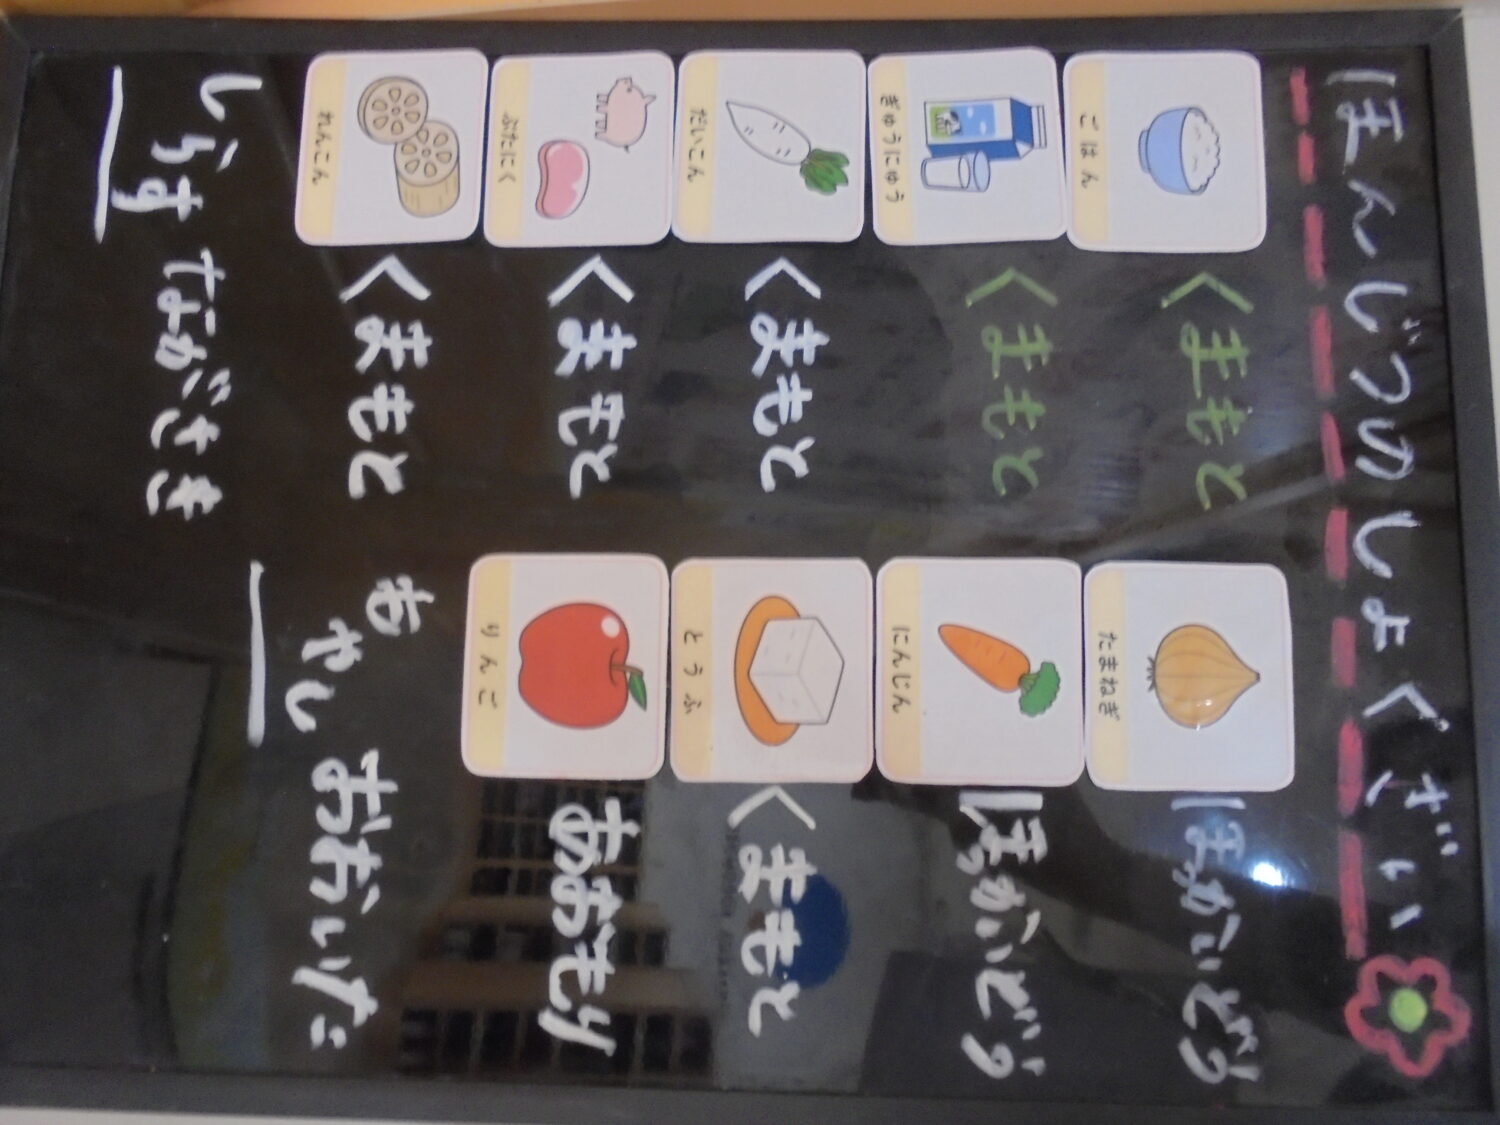 ほんじつのしょくざい
ごはん くまもと
ぎゅうにゅう くまもと
だいこん くまもと
ぶたにく くまもと
れんこん くまもと
しらす ながさき
たまねぎ ほっかいどう
にんじん ほっかいどう
とうふ くまもと
りんご あおもり
もやし おおいた